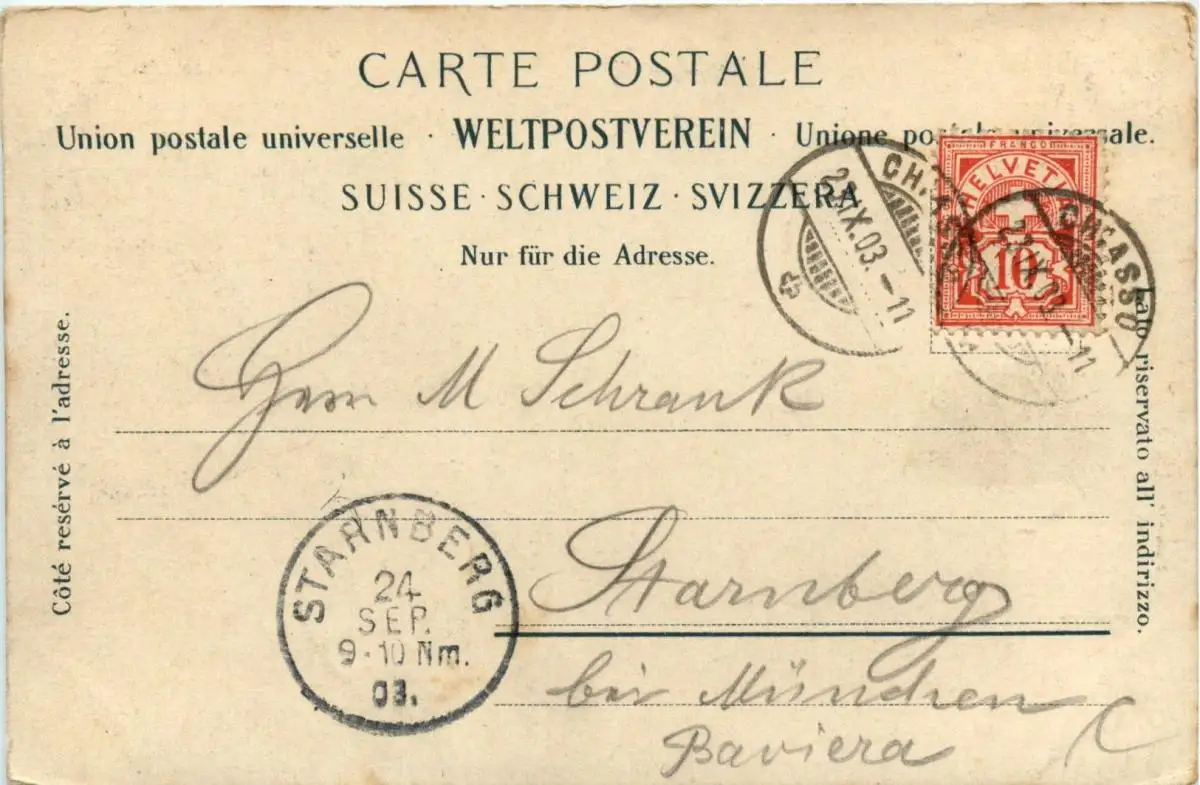 CARTE POSTALE
Union postale universelle · WELTPOSTVEREIN · Unione postale universale.
SUISSE · SCHWEIZ · SVIZZERA
Nur für die Adresse.
FRANCO
HELVETIA
10
CHIASSO
IX.03.-11
CHIASSO
IX.03-11
Côté resérvé à l'adresse.
Lato riservato all' indirizzo.
Herrn M Schrank
STARNBERG
24
SEP.
9-10 Nm.
03.
Starnberg
bei München
Baviera